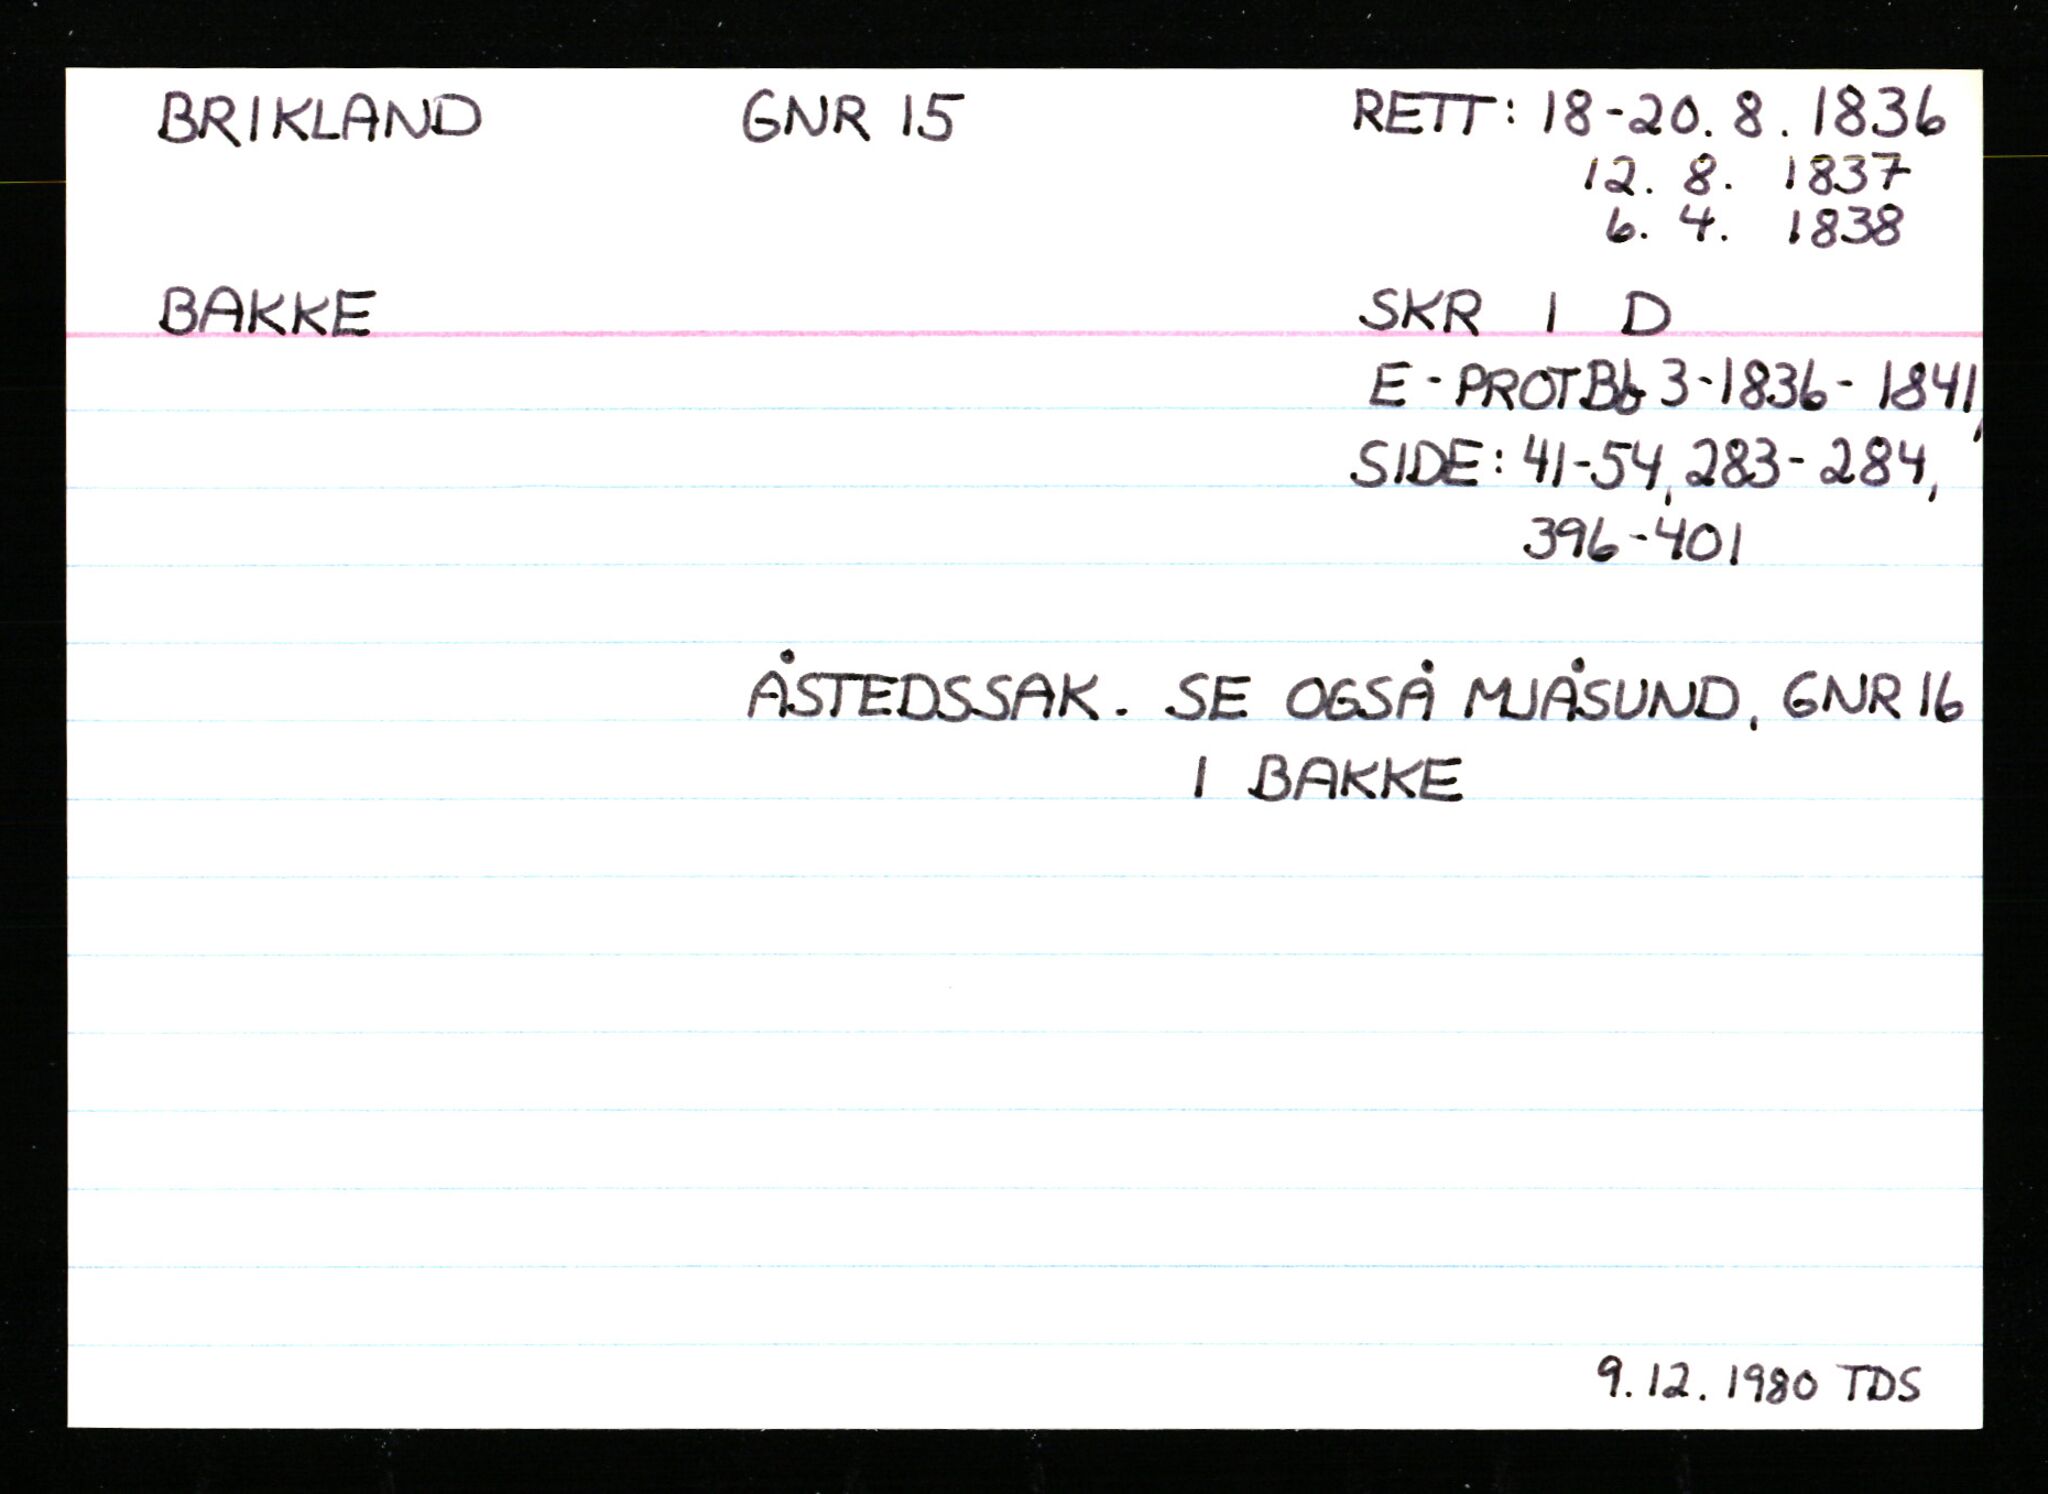 BRIKLAND GNR 15 RETT: 18-20. 8. 1836
12. 8. 1837
6. 4. 1838
BAKKE SKR I D
E - PROT Bb 3 - 1836 - 1841,
SIDE: 41-54, 283-284,
396-401
ÅSTEDSSAK. SE OGSÅ MJÅSUND, GNR 16
I BAKKE
9.12.1980 TDS